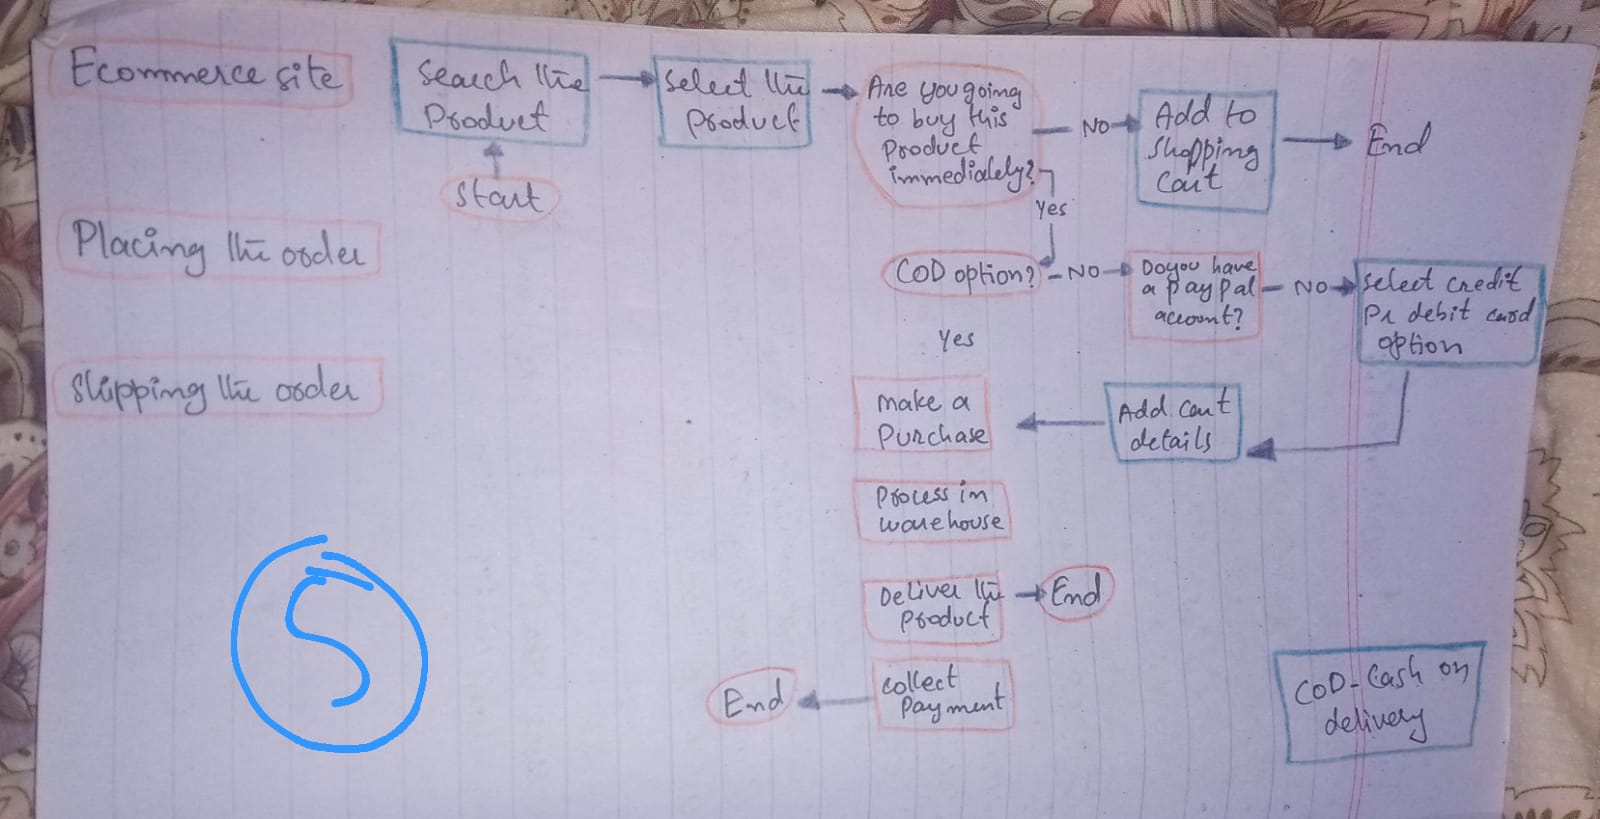 Ecommerce site
Search the
Product
Start
Select the
product
Are you going
to buy this
Product
immediately?
NO
Add to
Shopping
Cart
End
Yes
Placing the order
COD option?
NO
Do you have
a paypal
account?
NO
Select credit
Pr debit card
option
Yes
Shipping the order
Make a
Purchase
Add cart
details
Process in
warehouse
Deliver the
product
End
Collect
Payment
End
COD-Cash on
delivery
5